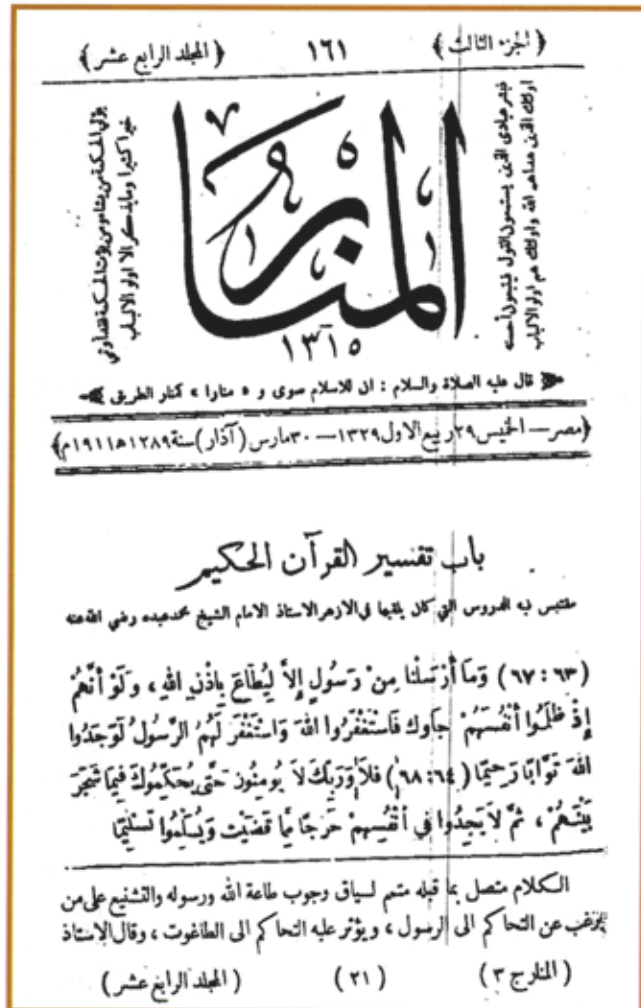 ﴿ الجزء الثالث ﴾ ١٦١ ﴿ المجلد الرابع عشر ﴾
فبشر عبادي الذين يستمعون القول فيتبعون أحسنه
اولئك الذين هداهم الله واولئك هم اولو الالباب
المنار
١٣١٥
يؤتي الحكمة من يشاء ومن يؤت الحكمة فقد أوتي
خيرا كثيرا وما يذكر الا اولو الالباب
قال عليه الصلاة والسلام : ان للاسلام صوى و « منارا » كمنار الطريق
﴿مصر — الخميس ٢٩ ربيع الاول ١٣٢٩ — ٣٠ مارس ( آذار ) سنة ١٢٨٩ ه‍ ١٩١١م﴾
باب تفسير القرآن الحكيم
مقتبس فيه الدروس التي كان يلقيها في الازهر الاستاذ الامام الشيخ محمد عبده رضي الله عنه
(٦٣ : ٦٧) وَمَا أَرْسَلْنَا مِنْ رَسُولٍ إِلاَّ لِيُطَاعَ بِإِذْنِ اللهِ ، وَلَوْ أَنَّهُمْ
إِذْ ظَلَمُوا أَنْفُسَهُمْ جَاوكَ فَاسْتَغْفَرُوا اللهَ وَاسْتَغْفَرَ لَهُمُ الرَّسُولُ لَوَجَدُوا
اللهَ تَوَّابًا رَحِيمًا (٦٤ : ٦٨) فَلاَ وَرَبِّكَ لاَ يُومِنُونَ حَتَّى يُحَكِّمُوكَ فِيمَا شَجَرَ
بَيْنَهُمْ ، ثُمَّ لاَ يَجِدُوا فِي أَنْفُسِهِمْ حَرَجًا مِمَّا قَضَيْتَ وَيُسَلِّمُوا تَسْلِيمًا
الكلام متصل بما قبله متمم لسياق وجوب طاعة الله ورسوله والتشنيع على من
يرغب عن التحاكم الى الرسول ، ويؤثر عليه التحاكم الى الطاغوت ، وقال الاستاذ
( المنار ج ٣ ) ( ٢١ ) ( المجلد الرابع عشر )